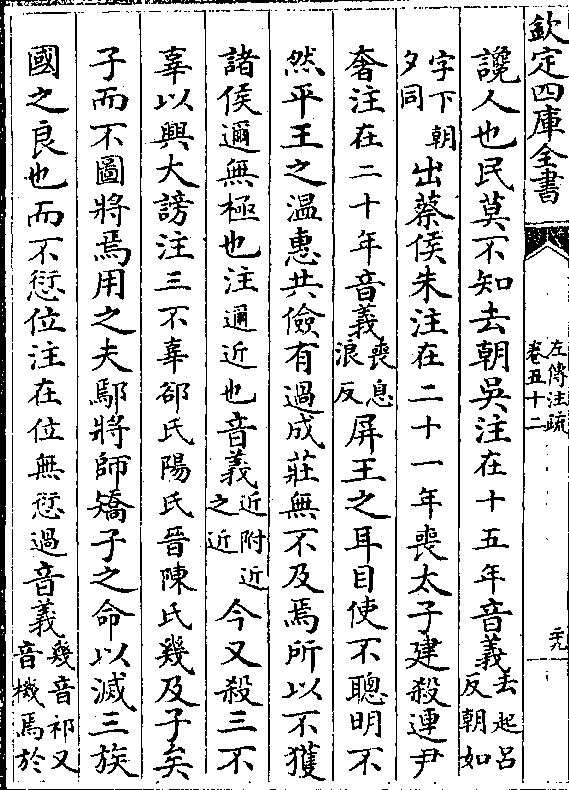 欽定四庫全書
左傳注疏
卷五十二
二十九
讒人也民莫不知去朝吳注在十五年音義去起呂反朝如
字下朝夕同出蔡侯朱注在二十一年喪太子建殺連尹
奢注在二十年音義喪息浪反屏王之耳目使不聰明不
然平王之温惠共儉有過成莊無不及焉所以不獲
諸侯邇無極也注邇近也音義近附近之近今又殺三不
辜以興大謗注三不辜郤氏陽氏晉陳氏幾及子矣
子而不圖將焉用之夫鄢將師矯子之命以滅三族
國之良也而不愆位注在位無愆過音義幾音祁又音機焉於